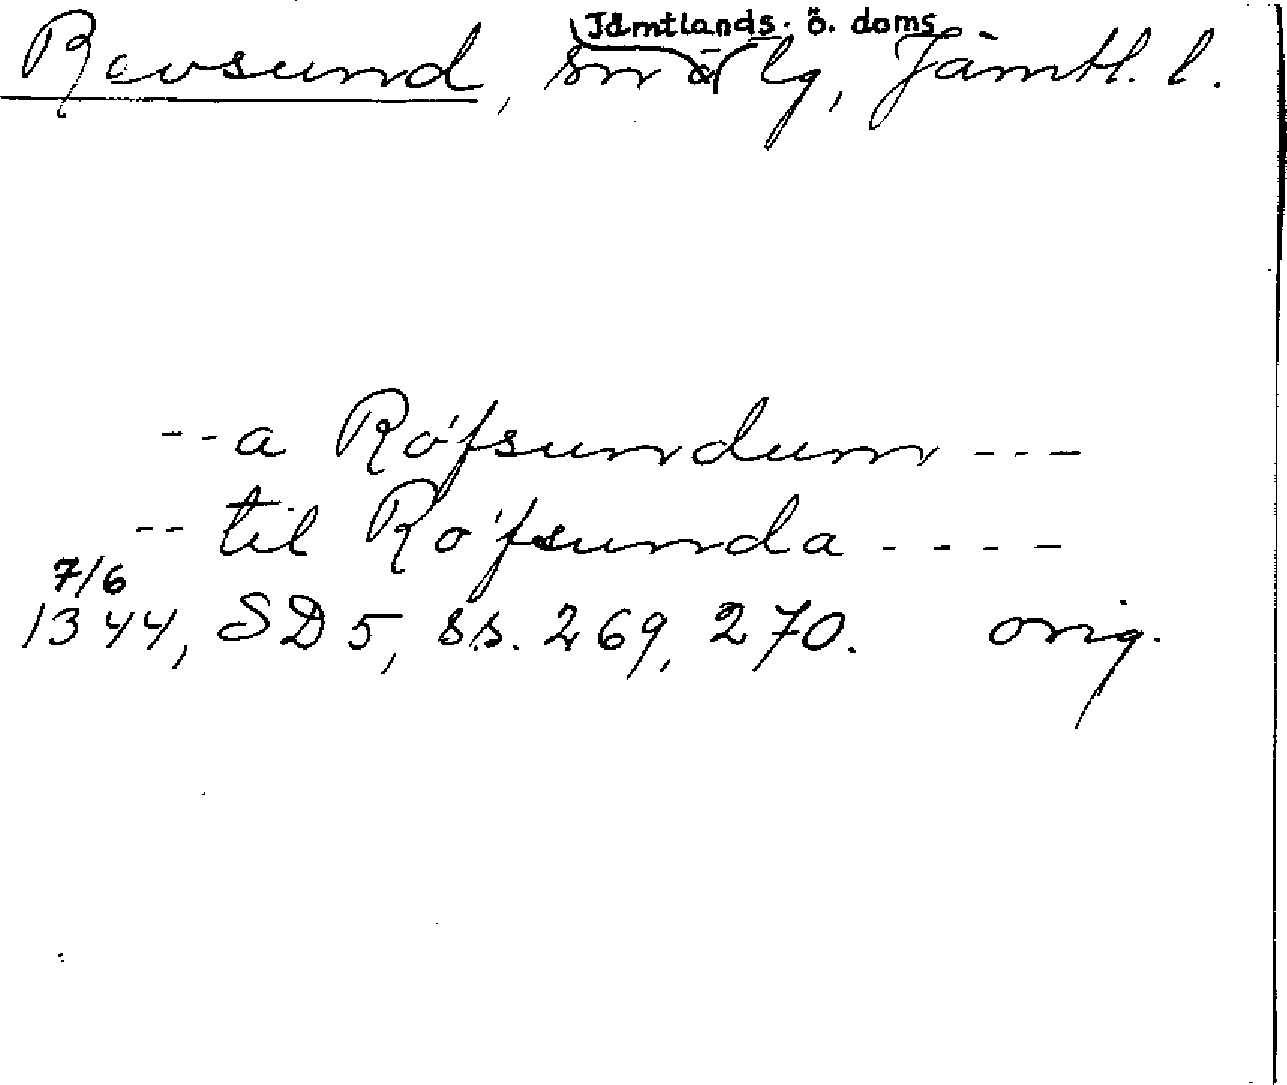 Jämtlands. ö. doms
Revsund, sn ö lg, Jämtl. l.
-- a Röfsundum ---
-- til Röfsunda ----
7/6
1344, SD 5, ss. 269, 270. orig.